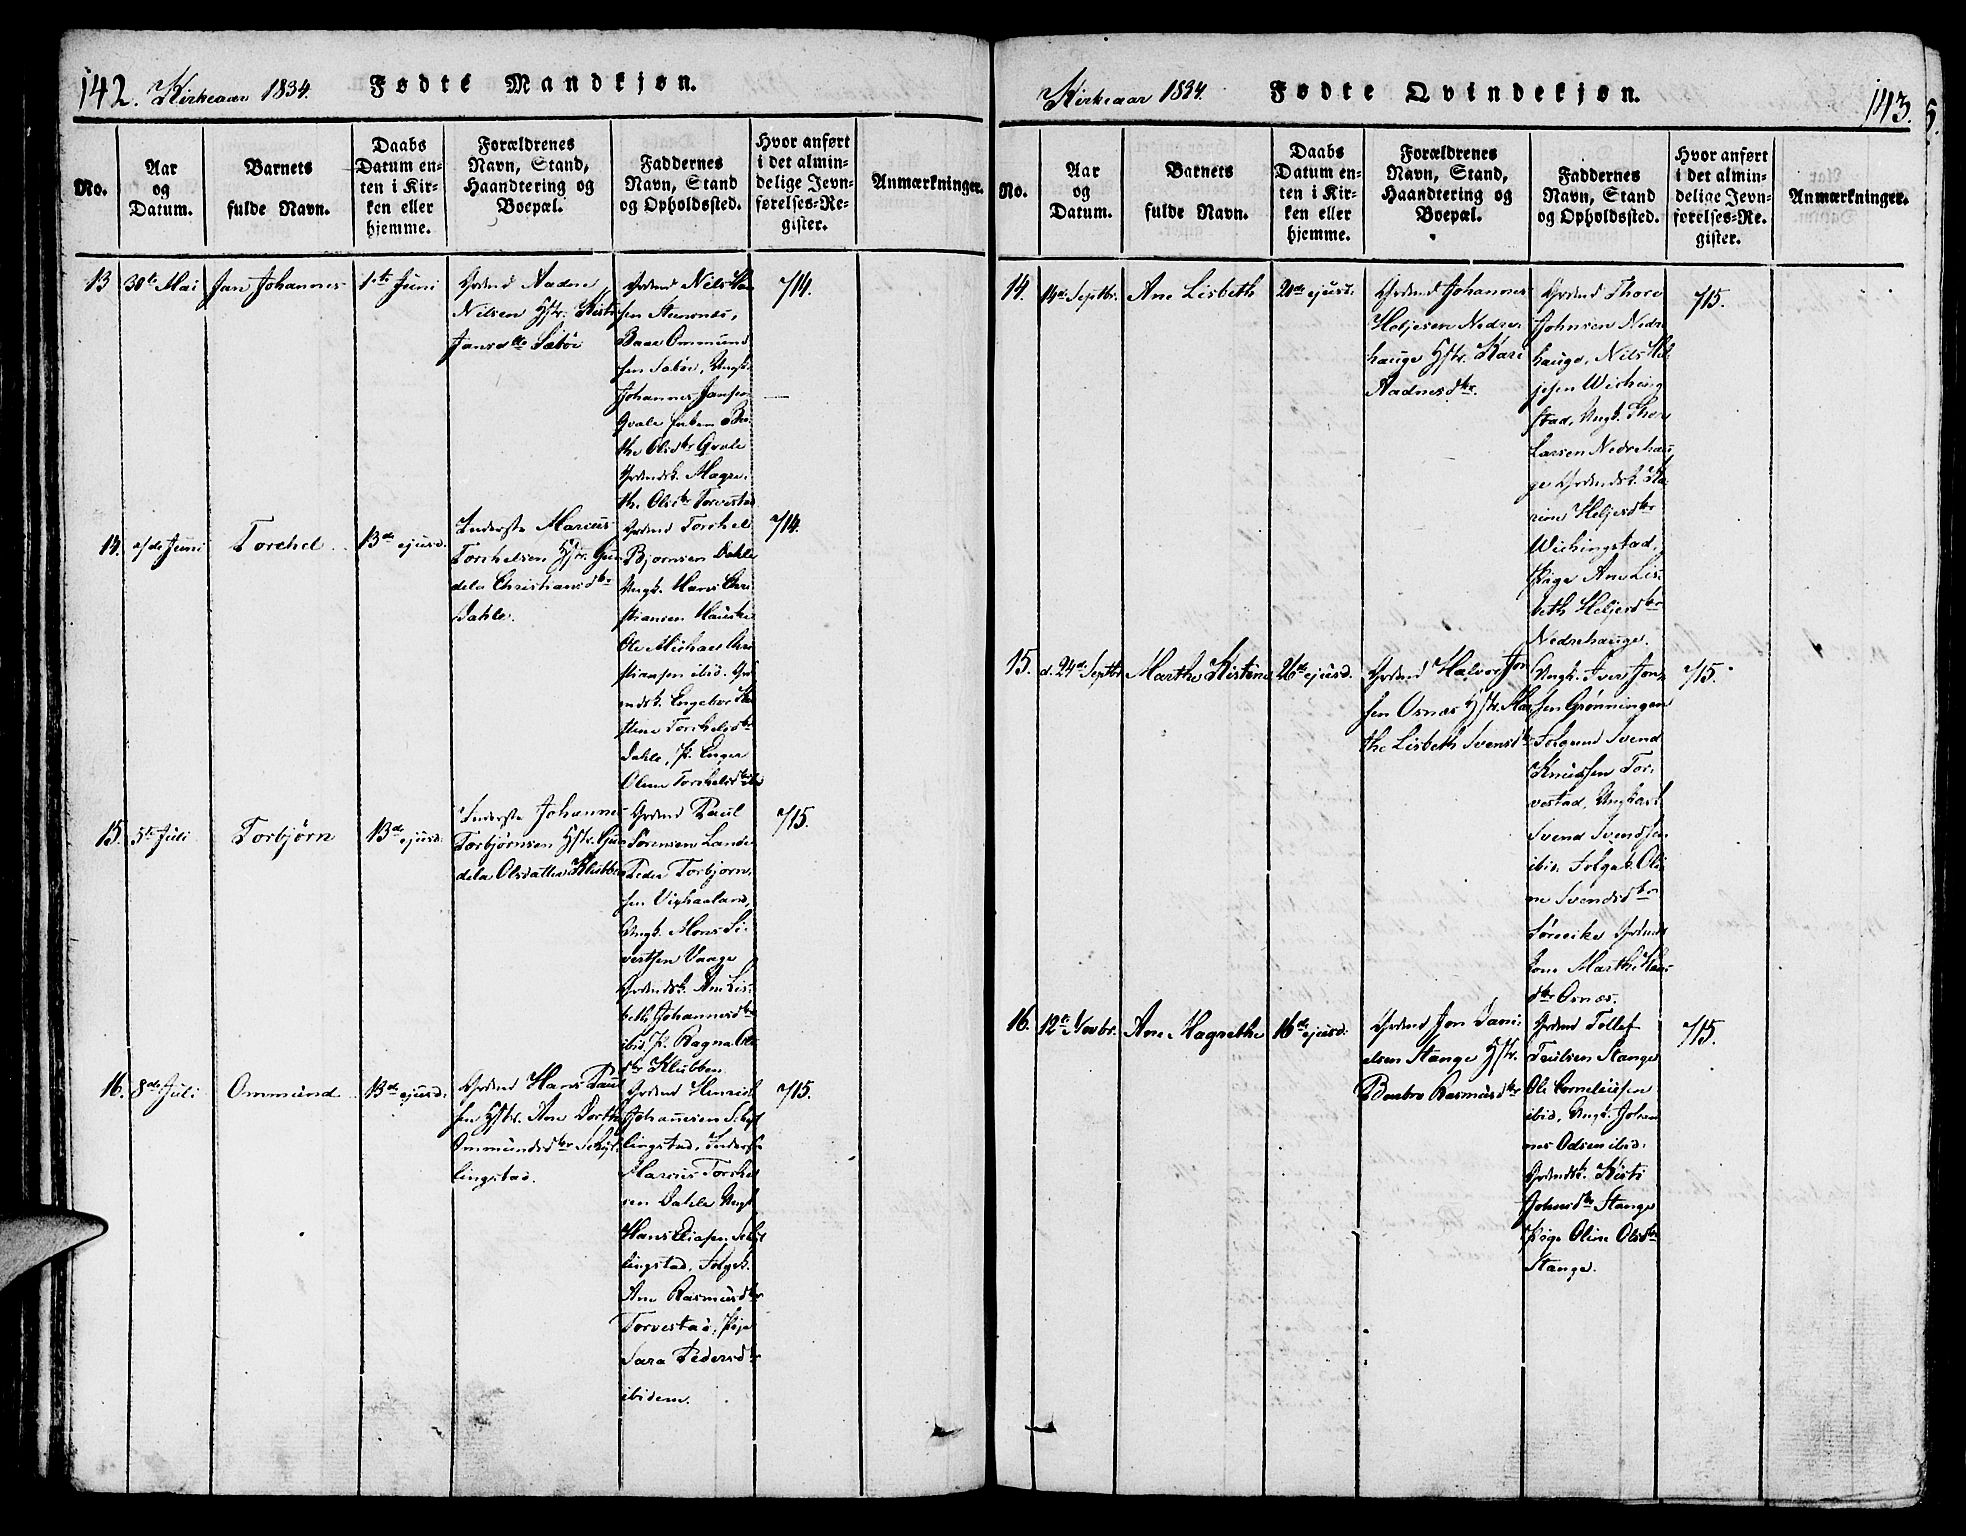 142. Kirkeaar 1834. Fødte Mandkjøn.
No.
Aar
og
Datum.
Barnets
fulde Navn.
Daabs
Datum en-
ten i Kir-
ken eller
hjemme.
Forældrenes
Navn, Stand,
Haandtering og
Boepæl.
Faddernes
Navn, Stand
og Opholdssted.
Hvor anført
i det almin-
delige Jevn-
førelses-Re-
gister.
Anmærkninger.
13 30te Mai Jan Johannes 1ste Juni
Grdmd Aadne
Nilsen Hstr. Kisti
Jansdtr Sæbøe
Grdmd Nils
sen
Baar Ommund
sen Sæbøe, Ungk.
Johannes Jansen
Qvale
the Olsdtr Qvale
Grdmdsk. Magre-
the Olsdtr Torvestad
714.
14. Juni Torchel 13de ejusd.
Inderste Marcus
Torchelsen Hstr. Gun
dela Christiansdtr
Dahle.
Grdmd Torchel
Bjornsen Dahle
Ungk. Hans Chri-
stiansen Hauske
Ole Michael Chri
stiansen ibid. Gr
mdsk. Engebor
stine Torchelsdtr
Dahle, P. Inger
Oline Torchelsdtr ibid
714.
15. 5te Juli Torbjørn 13de ejusd.
Inderste Johannes
Torbjørnsen Hstr. Gun
dela Olsdatter Klubben
Grdmd Paul
Sørensen Lande
Peder Torbjørn
sen Vixhaaland,
Ungk. Mons Si-
vertsen Vaage
Grdmdsk. Ane Lis-
beth Johannesdtr
ibid, P. Ragna Ols
dtr Klubben
715.
16. 8de Juli Ommund 13de ejusd.
Grdmd Hans Paul
sen Hstr. Ane Dorthe
Ommundsdtr
lingstad.
Grdmd Henrich
Johannesen
lingstad, Inderste
Marcus Torchel
sen Dahle Ungk
Hans
lingstad, Folgek.
Ane Rasmusdtr
Torvestad, Pige
Sara Pedersdtr
ibidem.
715.
Kirkeaar 1834. Fødte Qvindekjøn. 143.
No.
Aar
og
Datum.
Barnets
fulde Navn.
Daabs
Datum en-
ten i Kir-
ken eller
hjemme.
Forældrenes
Navn, Stand,
Haandtering og
Boepæl.
Faddernes
Navn, Stand
og Opholdssted.
Hvor anført
i det almin-
delige Jevn-
førelses-Re-
gister.
Anmærkninger.
14. 14de Septbr. Ane Lisbeth 21de ejusd.
Grdmd Johannes
Heljesen Nedre
hauge Hstr. Kari
Aadnesdtr.
Grdmd Thore
Johnsen Nedre
hauge, Nils Hel
jesen Wiching
stad, Ungk. Thore
Larsen Nedrehau
ge Grdmdsk. Ka-
rine Heljesdtr
Wichingstad,
Pige Ane Lis-
beth Heljesdtr
Nedrehauge.
715.
15. d. 24de Septbr Marthe Kistine 26de ejusd.
Grdmd Halvor Jon
sen Osnæs Hstr. Mar
the Lisbeth Svensdtr
Ungk. Iver Jon-
sen Grønningen
Folgmd Svend
Knudsen Tor-
vestad, Ungkarl
Svend Svendsen
ibid. Folgek. Oli
ne Svendsdtr
Sørveike Grdmds
kone Marthe
dtr Osnæs.
715.
16. 12te Novbr. Ane Magrethe 16de ejusd.
Grdmd Jon Dani-
elsen Stange Hstr.
Rasmusdtr
Grdmd Tollef
Teulsen Stange
Ole Corneliussen
ibid, Ungk. Johan
nes Odsen ibid.
Grdmdsk. Kisti
Johnsdtr Stange
Pige Oline Olsdtr
Stange.
715.